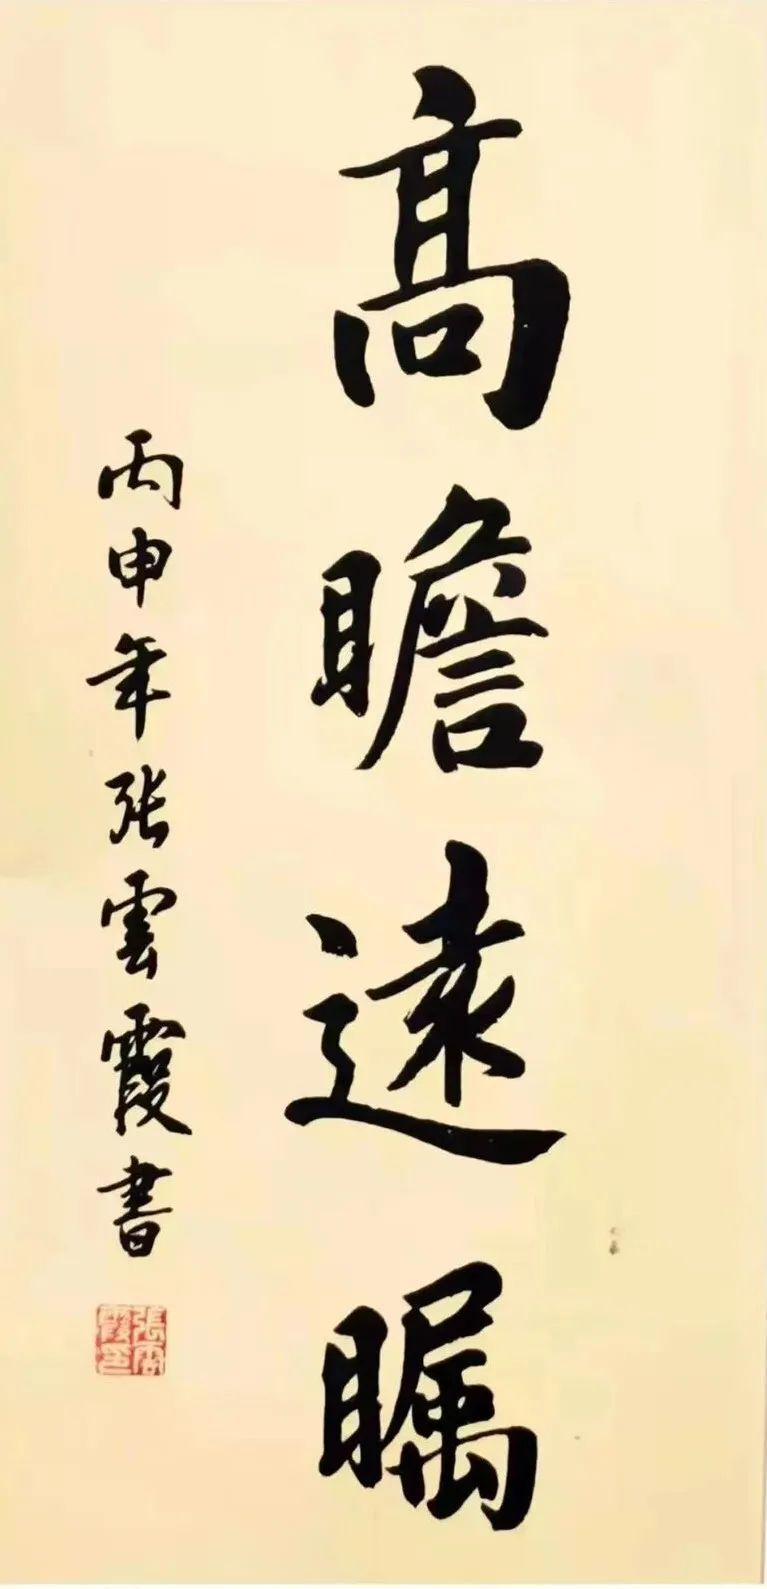 高瞻遠瞩
丙申年张雲霞書
張雲霞印